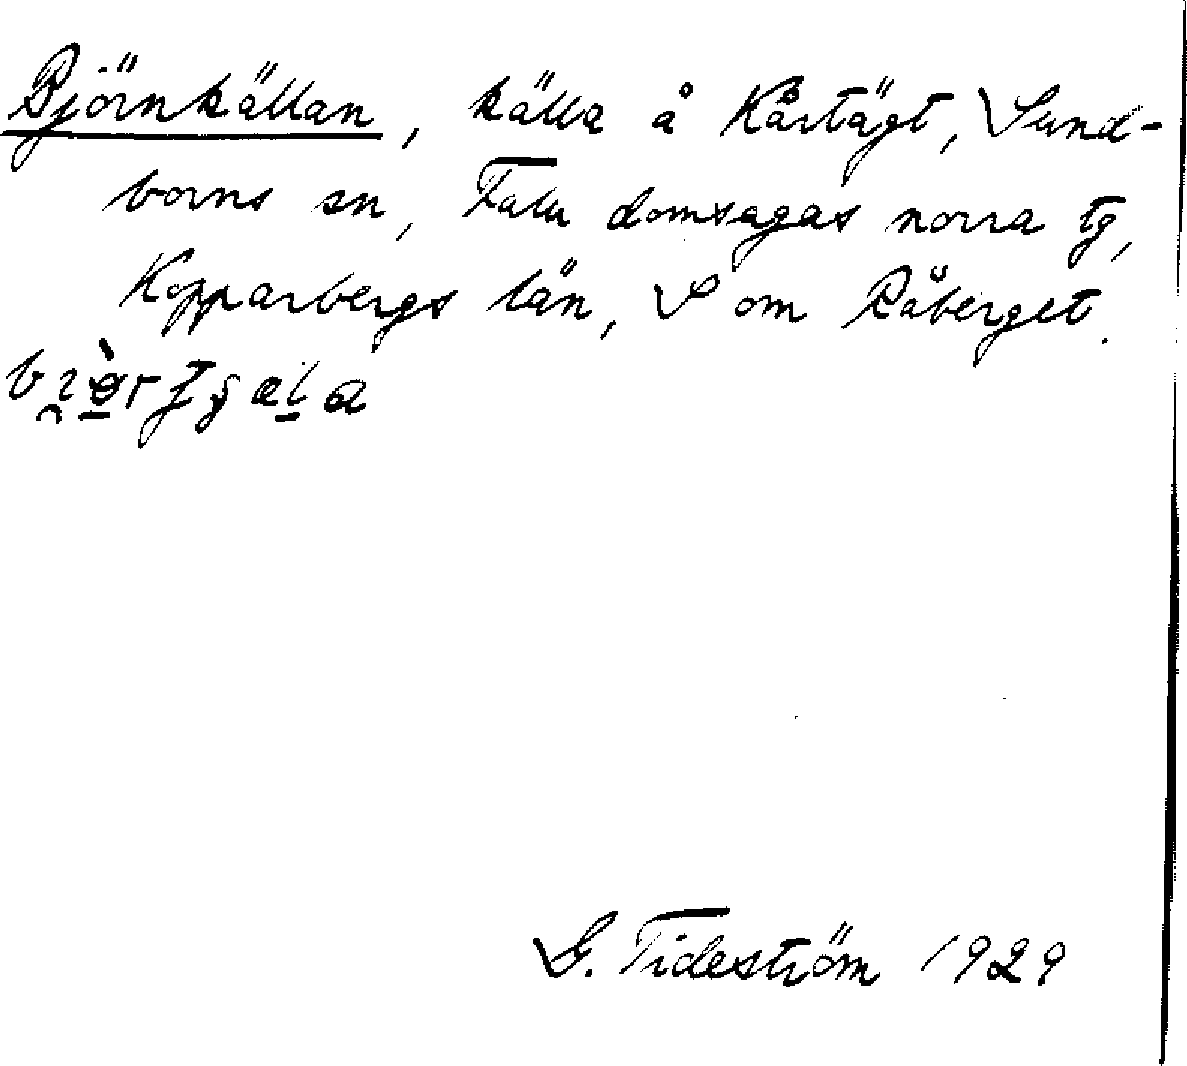 Björnkällan, källa å Kårtägt, Sund-
borns sn, Falu domsagas norra tg,
Kopparbergs län, S om Råberget.
G. Tideström 1929